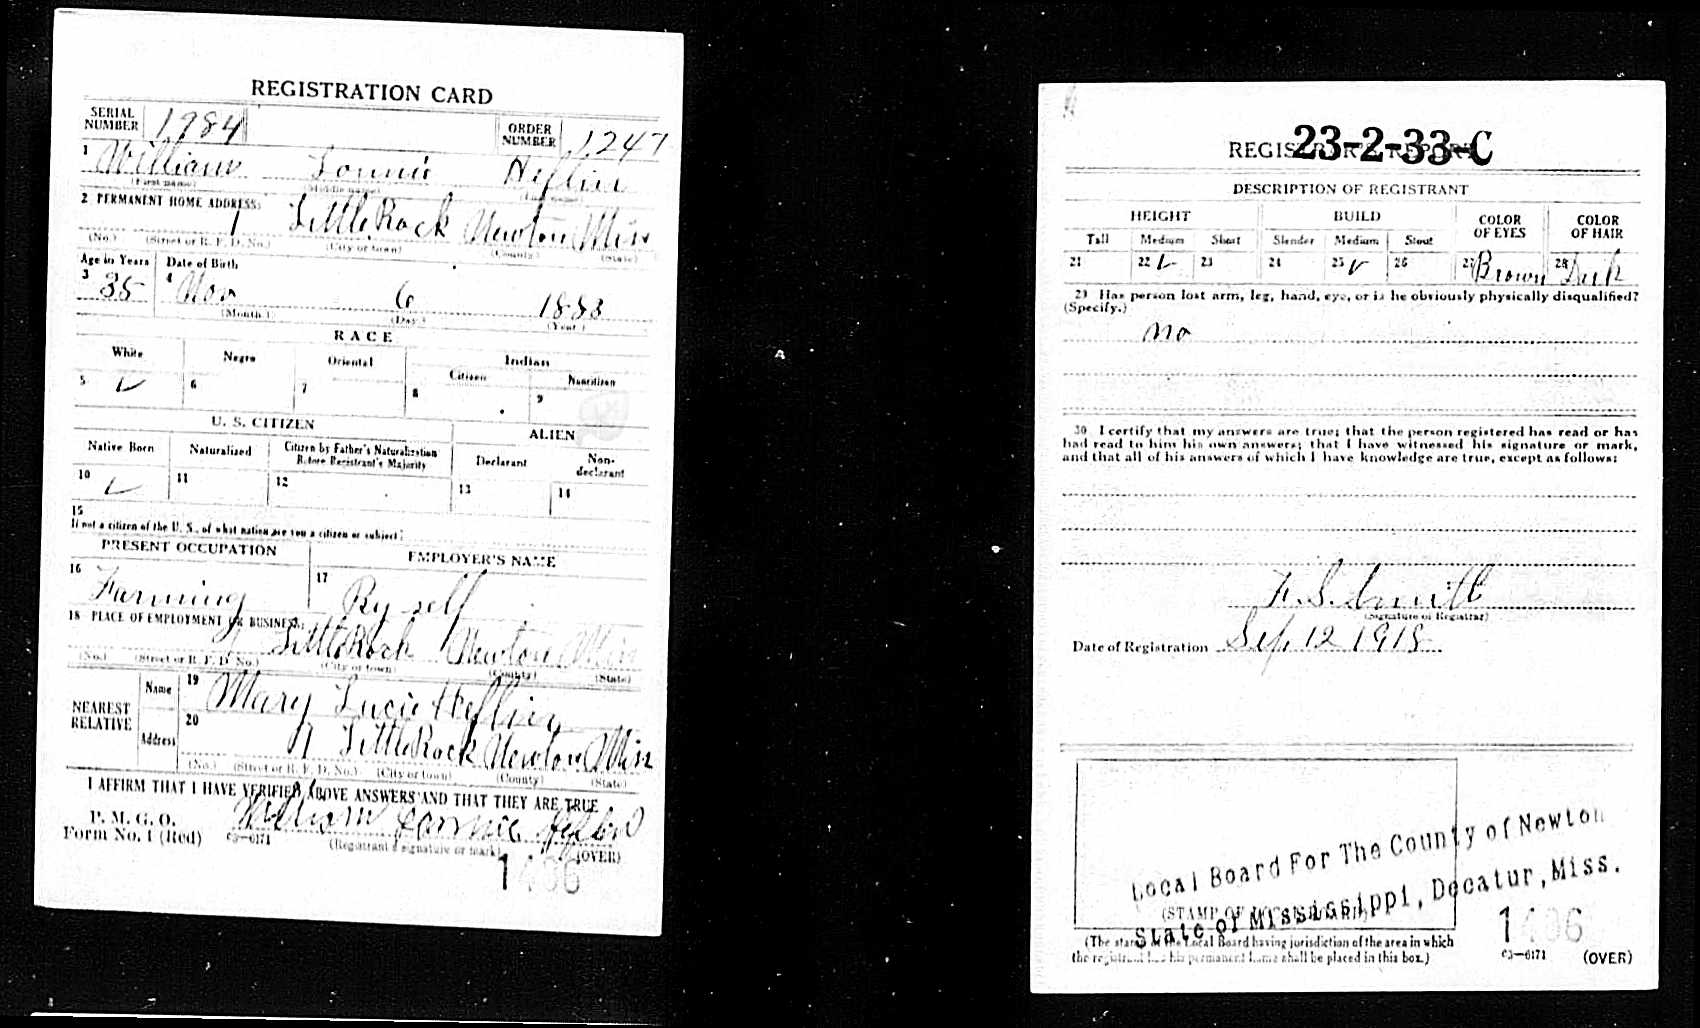 REGISTRATION CARD
SERIAL NUMBER 1984
ORDER NUMBER 1247
1 William Lonnie Heflin
(First name) (Middle name) (Last name)
2 PERMANENT HOME ADDRESS:
1 Little Rock Newton Miss
(No.) (Street or R. F. D. No.) (City or town) (County) (State)
Age in Years Date of Birth
3 35 4 Nov 6 1883
(Month.) (Day.) (Year.)
RACE
White Negro Oriental Indian
Citizen Noncitizen
5 ✓ 6 7 8 9
U. S. CITIZEN ALIEN
Native Born Naturalized Citizen by Father's Naturalization Before Registrant's Majority Declarant Non-declarant
10 ✓ 11 12 13 14
15
If not a citizen of the U. S., of what nation are you a citizen or subject?
PRESENT OCCUPATION EMPLOYER'S NAME
16 Farming 17 By self
18 PLACE OF EMPLOYMENT OR BUSINESS:
Little Rock Newton Miss
(No.) (Street or R. F. D. No.) (City or town) (County) (State)
NEAREST RELATIVE
Name 19 Mary Lucie Heflin
Address 20 1 Little Rock Newton Miss
(No.) (Street or R. F. D. No.) (City or town) (County) (State)
I AFFIRM THAT I HAVE VERIFIED ABOVE ANSWERS AND THAT THEY ARE TRUE
P. M. G. O.
Form No. 1 (Red) c3—6171 William Lonnie Heflin
(Registrant's signature or mark) (OVER)
1406
23-2-33-C
REGISTRAR'S REPORT
DESCRIPTION OF REGISTRANT
HEIGHT BUILD COLOR OF EYES COLOR OF HAIR
Tall Medium Short Slender Medium Stout
21 22 ✓ 23 24 25 ✓ 26 27 Brown 28 Dark
29 Has person lost arm, leg, hand, eye, or is he obviously physically disqualified?
(Specify.)
no
30 I certify that my answers are true; that the person registered has read or has
had read to him his own answers; that I have witnessed his signature or mark,
and that all of his answers of which I have knowledge are true, except as follows:
Smith
(Signature of Registrar)
Date of Registration Sep 12 1918
Local Board For The County of Newton
State of Mississippi, Decatur, Miss.
(STAMP OF LOCAL BOARD)
(The stamp of the Local Board having jurisdiction of the area in which
the registrant has his permanent home shall be placed in this box.)
1406
c3—6171 (OVER)